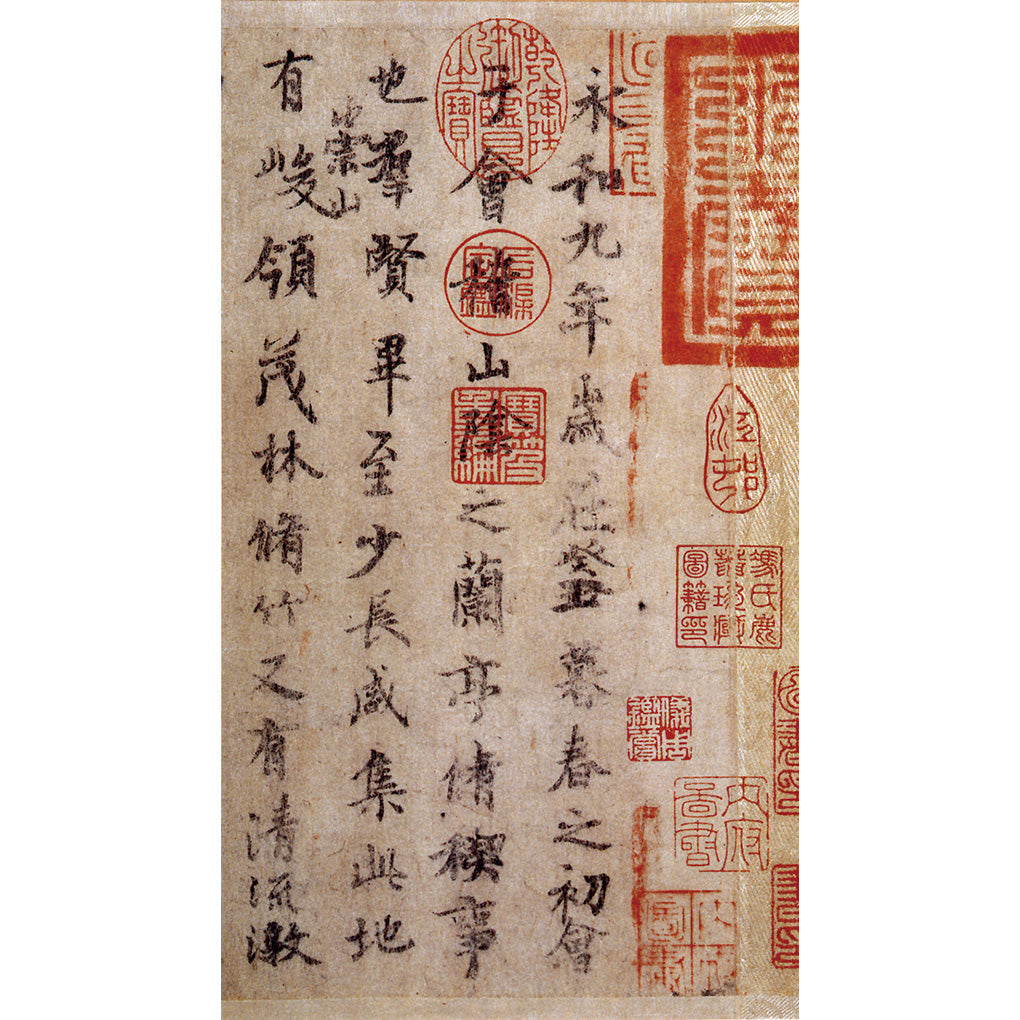 永和九年歲在癸丑暮春之初會
于會稽山陰之蘭亭脩稧事
也羣賢畢至少長咸集此地
崇山
有峻領茂林脩竹又有清流激
乾隆御覽之寶
石渠定鑑
寶笈重編
江邨
內府圖書